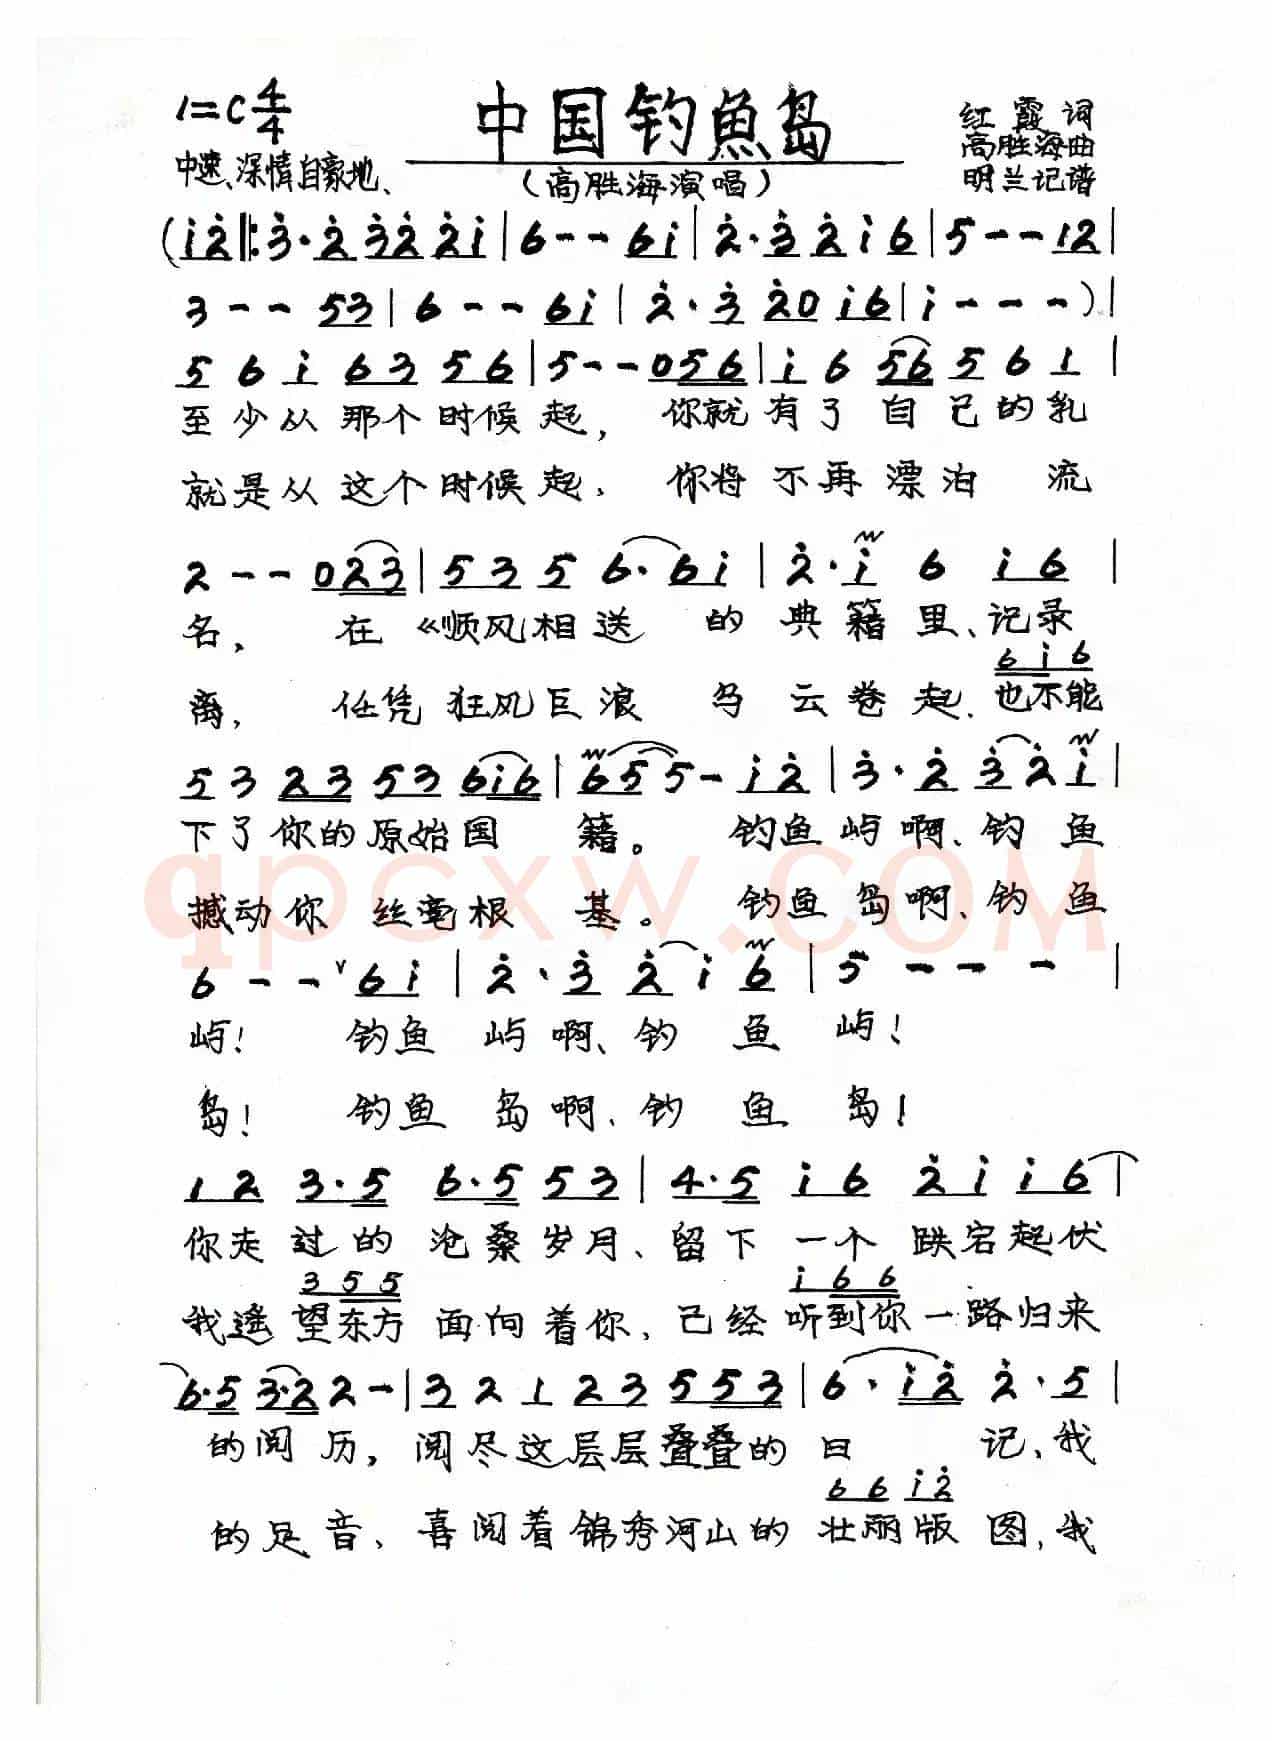 1=C 4/4
中国钓魚岛
红霞词
高胜海曲
中速、深情自豪地、
(高胜海演唱)
明兰记谱
(i̇ 2̇ ‖: 3̇· 2̇ 3̇ 2̇ 2̇ i̇ | 6 - - 6 i̇ | 2̇· 3̇ 2̇ i̇ 6 | 5 - - 1 2 |
3 - - 5 3 | 6 - - 6 i̇ | 2̇· 3̇ 2̇ 0 i̇ 6 | i̇ - - - ) |
5 6 i̇ 6 3 5 6 | 5 - - 0 5 6 | i̇ 6 5 6 5 6 1 |
至少从那个时候起, 你就有了自己的乳
就是从这个时候起、 你将不再漂泊流
2 - - 0 2 3 | 5 3 5 6· 6 i̇ | 2̇· i̇ 6 i̇ 6 |
名, 在《顺风相送的典籍里、记录
6 i̇ 6
离, 任凭狂风巨浪乌云卷起、也不能
5 3 2 3 5 3 6 i̇ 6 | 6 5 5 - i̇ 2̇ | 3̇· 2̇ 3̇ 2̇ i̇ |
下了你的原始国籍。 钓鱼屿啊、钓鱼
qpcxw.COM
撼动你丝毫根基。 钓鱼岛啊、钓鱼
6 - - ∨ 6 i̇ | 2̇· 3̇ 2̇ i̇ 6 | 5 - - - |
屿! 钓鱼屿啊、钓鱼屿!
岛! 钓鱼岛啊、钓鱼岛!
1 2 3· 5 6· 5 5 3 | 4· 5 i̇ 6 2̇ i̇ i̇ 6 |
你走过的沧桑岁月、留下一个跌宕起伏
3 5 5 i̇ 6 6
我遥望东方面向着你, 已经听到你一路归来
6· 5 3· 2 2 - | 3 2 1 2 3 5 5 3 | 6· i̇ 2̇ 2̇· 5 |
的阅历, 阅尽这层层叠叠的日记、我
6 6 i̇ 2̇
的足音、喜阅着锦秀河山的壮丽版图, 我